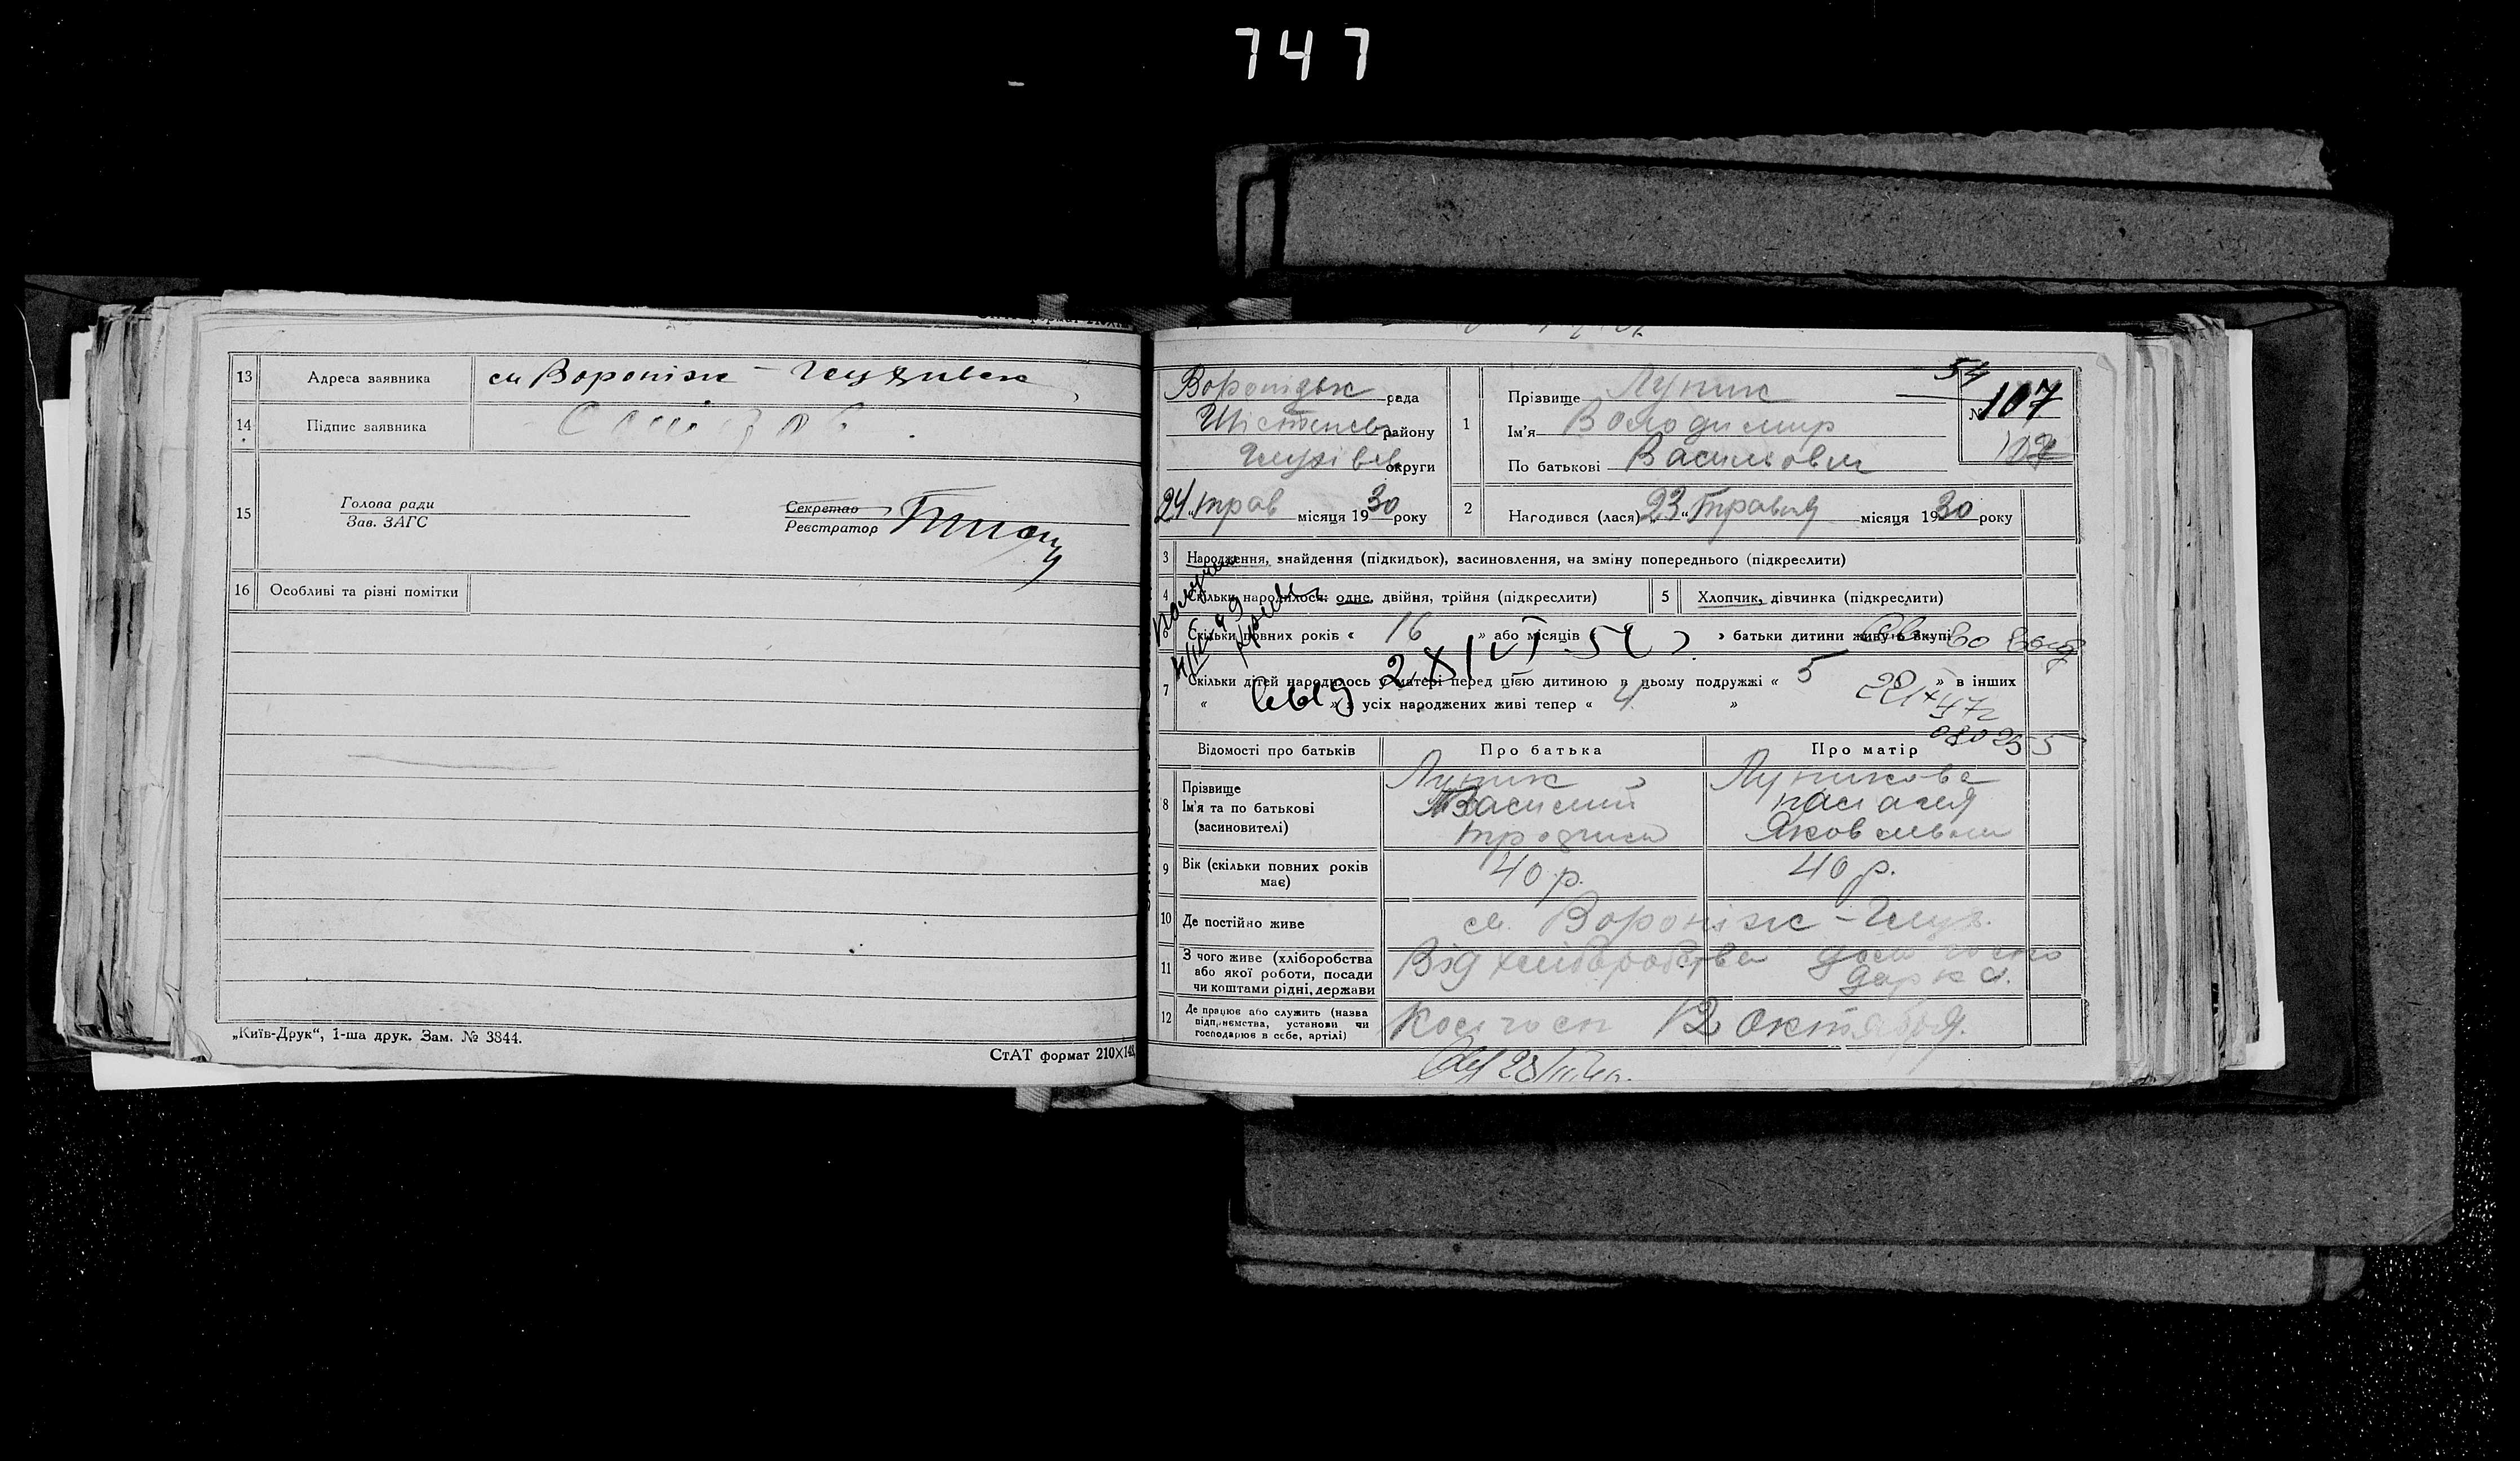 747
13 Адреса заявника см Вороніж - Глухівськ
14 Підпис заявника
15 Голова ради
Зав. ЗАГС
Секретар
Реєстратор
16 Особливі та різні помітки
„Київ-Друк“, 1-ша друк. Зам. № 3844.
СтАТ формат 210×14
рада
району
округи
24 трав місяця 1930 року
1 Прізвище Лупик
Ім'я Володимир
По батькові Васильович
54
№ 107
107
2 Народився (лася) „23“ Травня місяця 1930 року
3 Народження, знайдення (підкидьок), засиновлення, на зміну попереднього (підкреслити)
4 Скільки народилося: одне, двійня, трійня (підкреслити)
5 Хлопчик, дівчинка (підкреслити)
6 Скільки повних років « 16 » або місяців » батьки дитини живуть вкупі
7 Скільки дітей народилось у матері перед цією дитиною в цьому подружжі « 5 » в інших
« » з усіх народжених живі тепер « 4 »
Відомості про батьків Про батька Про матір
8 Прізвище
Ім'я та по батькові
(засиновителі)
Лупик
Василий
Лупикова
Яковлевна
9 Вік (скільки повних років має) 40 р. 40 р.
10 Де постійно живе см. Вороніж - Глух.
11 З чого живе (хліборобства або якої роботи, посади чи коштами рідні, держави
Від хліборобства дом госпо
дарка.
12 Де працює або служить (назва підприємства, установи чи господарює в себе, артілі)
Колгосп 12 Октября.